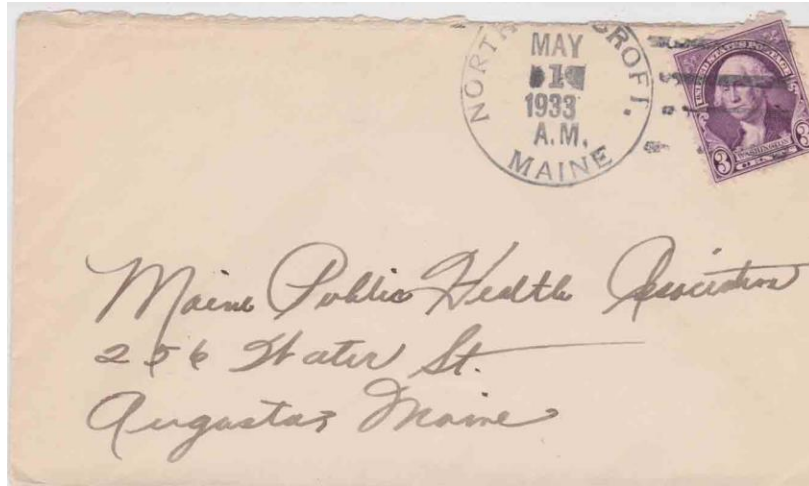 NORTH CROFT.
MAY
1
1933
A.M.
MAINE
UNITED STATES POSTAGE
3 WASHINGTON 3
CENTS
Maine Public Health Association
256 Water St.
Augusta, Maine